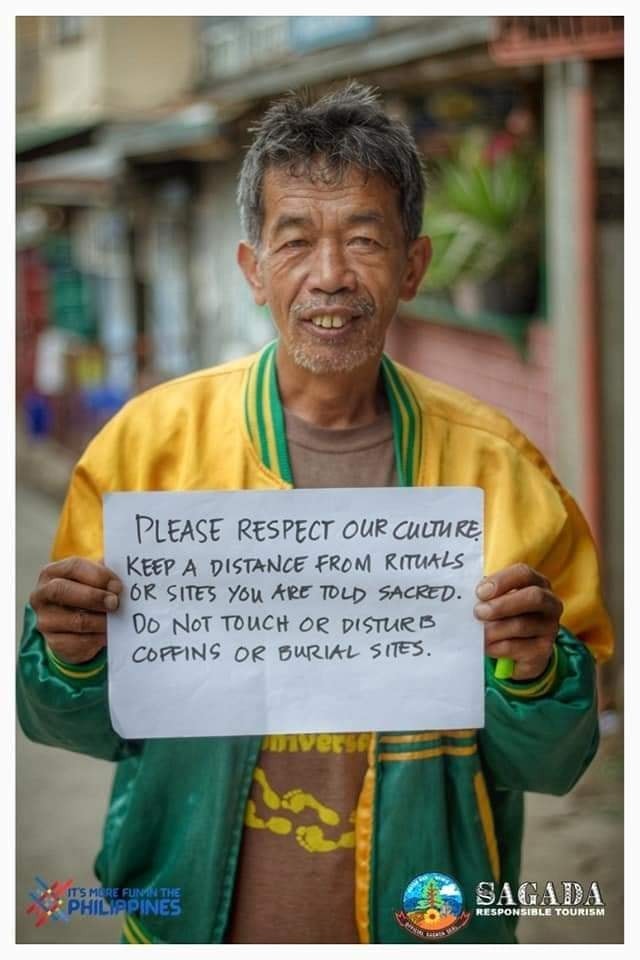 PLEASE RESPECT OUR CULTURE.
KEEP A DISTANCE FROM RITUALS
OR SITES YOU ARE TOLD SACRED.
DO NOT TOUCH OR DISTURB
COFFINS OR BURIAL SITES.
IT'S MORE FUN IN THE
PHILIPPINES
SAGADA
RESPONSIBLE TOURISM